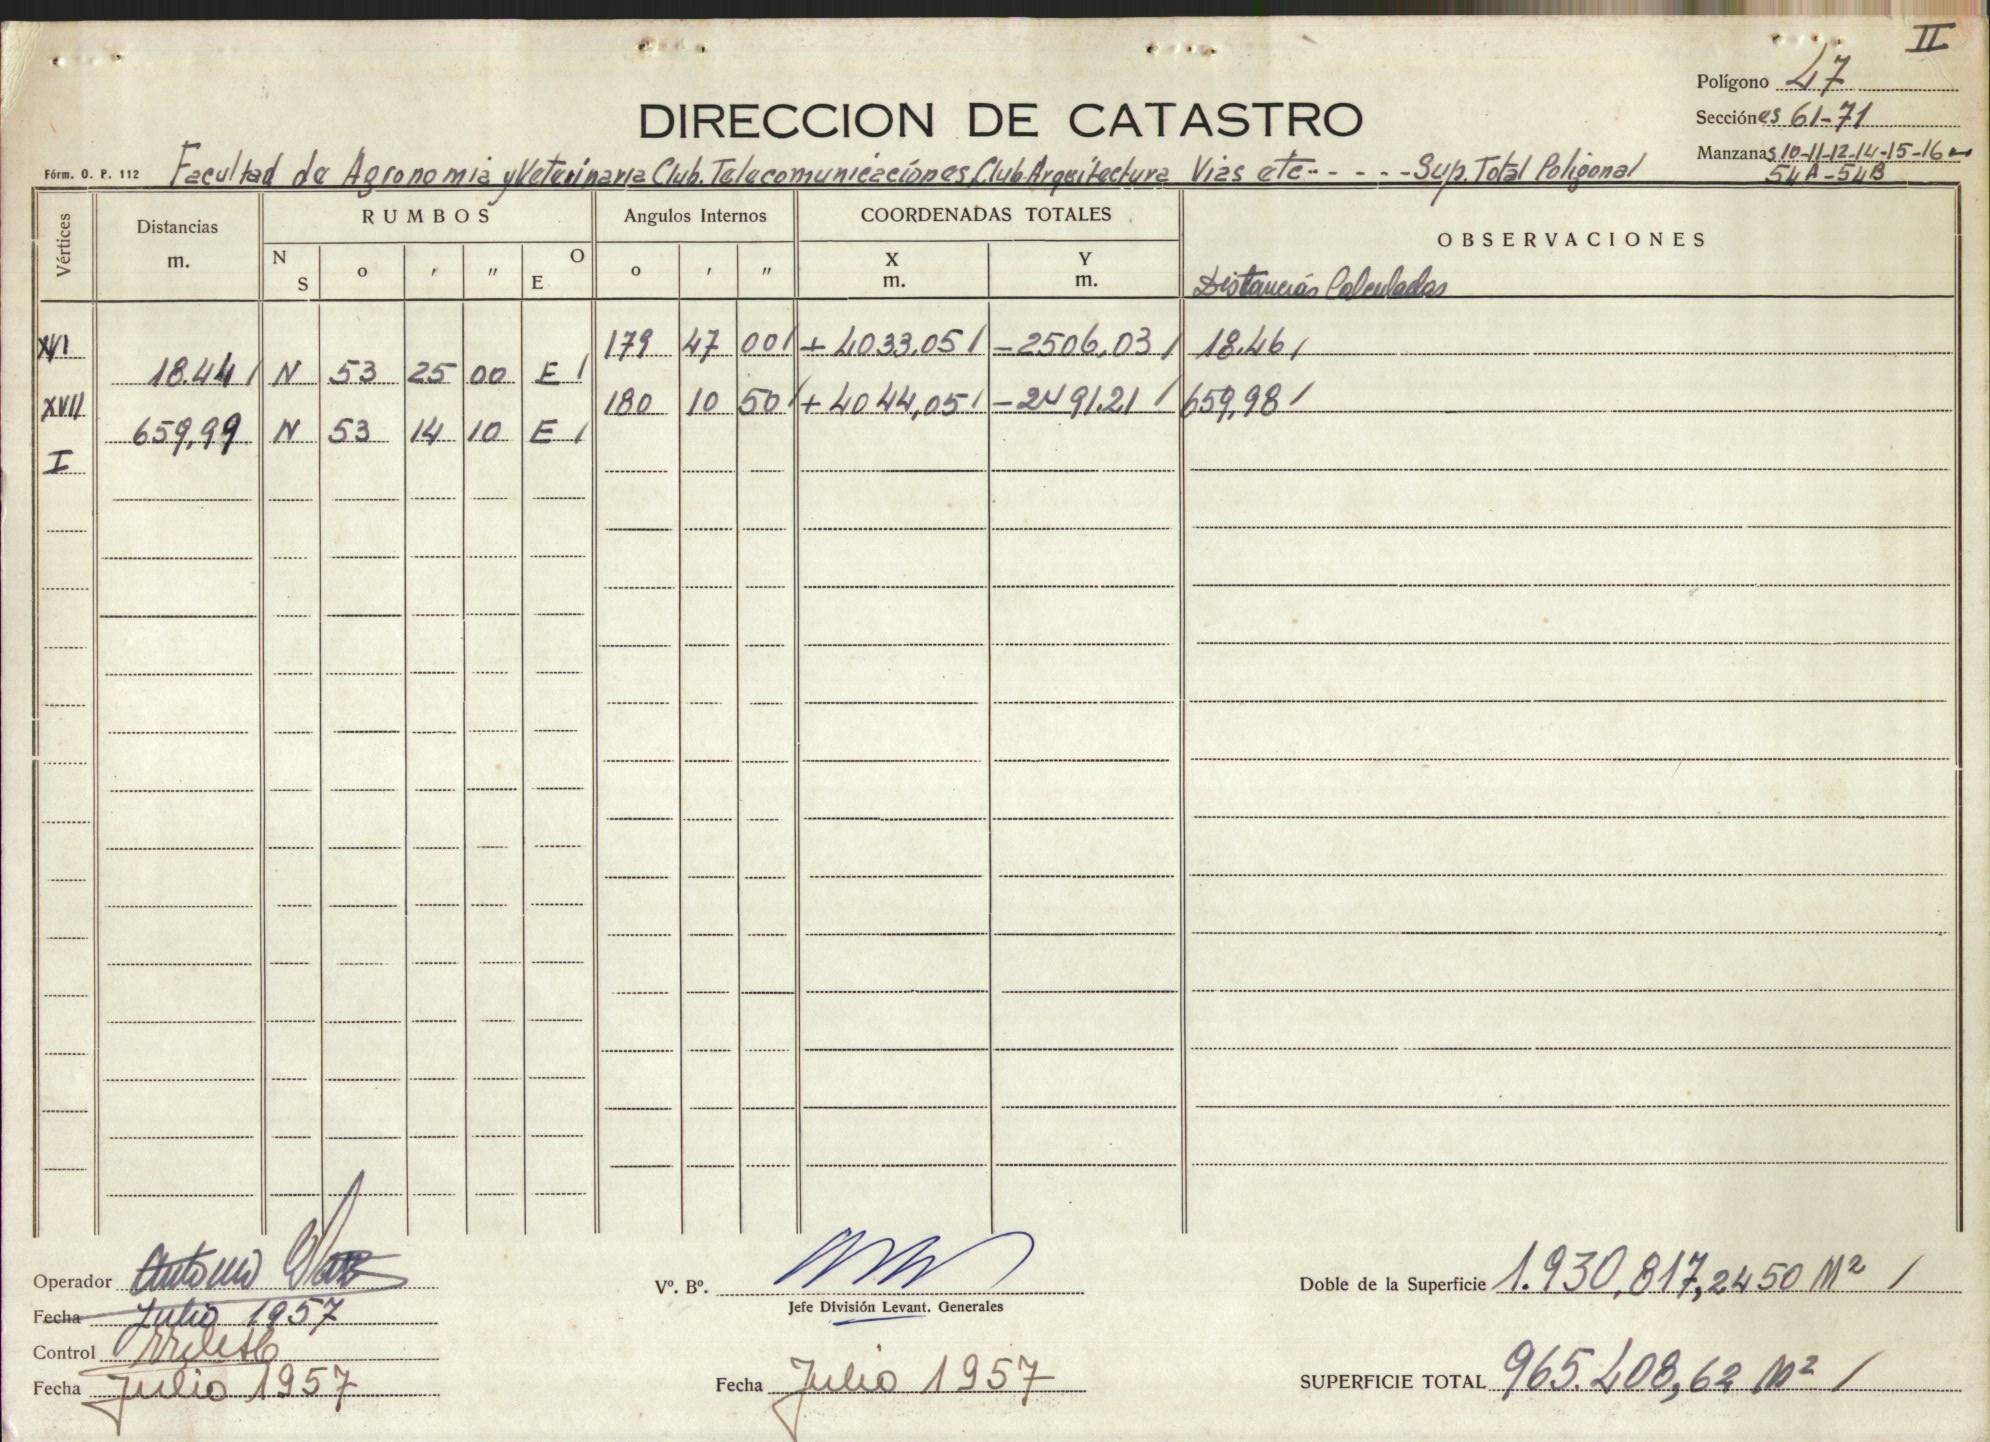 II
Polígono 47
DIRECCION DE CATASTRO
Secciónes 61-71
Manzanas 10-11-12-14-15-16
54A-54B
Fórm. O. P. 112 Facultad de Agronomia y Veterinaria Club. Telecomunicaciónes, Club Arquitectura Vias etc - - - - - Sup. Total Poligonal
Vértices Distancias m. RUMBOS Angulos Internos COORDENADAS TOTALES OBSERVACIONES
N S o ' " O E o ' " X m. Y m. Distancias Calculadas
XVI 179 47 00 + 4033,05 -2506,03 18.46
18.44 N 53 25 00 E
XVII 180 10 50 + 4044,05 -2491.21 659,98
659,99 N 53 14 10 E
I
Operador Antonio
Vº. Bº.
Doble de la Superficie 1.930,817,2450 M²
Jefe División Levant. Generales
Fecha Julio 1957
Control
Fecha Julio 1957
Fecha Julio 1957
SUPERFICIE TOTAL 965.408,62 M²